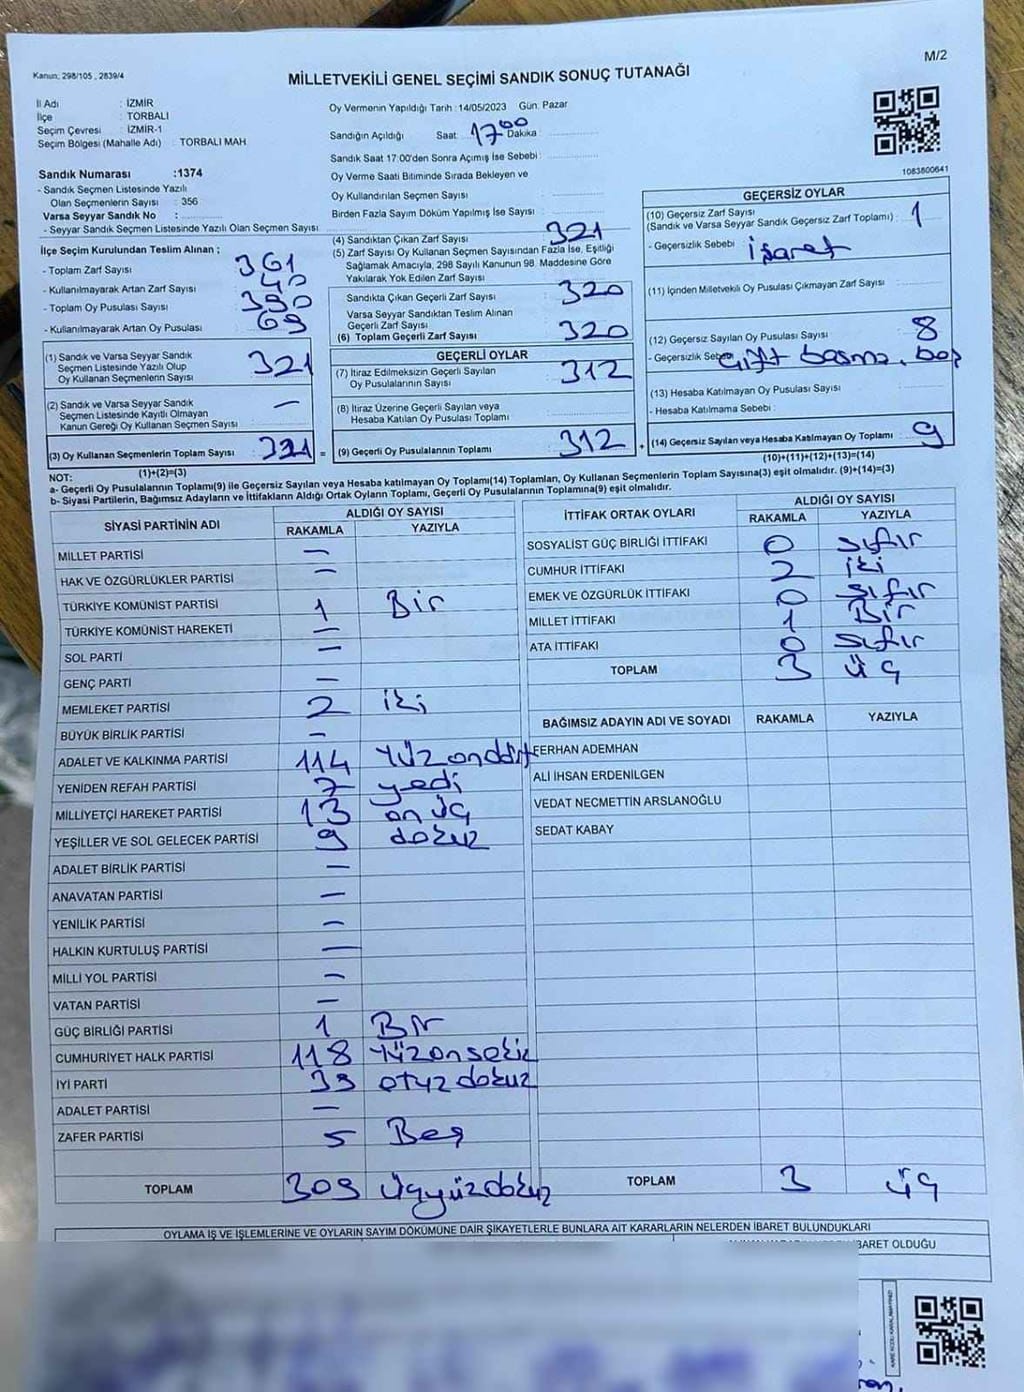 M/2
Kanun: 298/105 , 2839/4
MİLLETVEKİLİ GENEL SEÇİMİ SANDIK SONUÇ TUTANAĞI
İl Adı : İZMİR
İlçe : TORBALI
Seçim Çevresi : İZMİR-1
Seçim Bölgesi (Mahalle Adı) : TORBALI MAH
Sandık Numarası :1374
- Sandık Seçmen Listesinde Yazılı
Olan Seçmenlerin Sayısı : 356
Varsa Seyyar Sandık No :
- Seyyar Sandık Seçmen Listesinde Yazılı Olan Seçmen Sayısı
Oy Vermenin Yapıldığı Tarih : 14/05/2023 Gün. Pazar
Sandığın Açıldığı Saat: 17 00 Dakika :
Sandık Saat 17:00'den Sonra Açımış İse Sebebi :
Oy Verme Saati Bitiminde Sırada Bekleyen ve
Oy Kullandırılan Seçmen Sayısı :
Birden Fazla Sayım Döküm Yapılmış İse Sayısı :
1083800641
İlçe Seçim Kurulundan Teslim Alınan ;
- Toplam Zarf Sayısı : 361
- Kullanılmayarak Artan Zarf Sayısı : 40
- Toplam Oy Pusulası Sayısı : 390
- Kullanılmayarak Artan Oy Pusulası : 69
(1) Sandık ve Varsa Seyyar Sandık
Seçmen Listesinde Yazılı Olup
Oy Kullanan Seçmenlerin Sayısı : 321
(2) Sandık ve Varsa Seyyar Sandık
Seçmen Listesinde Kayıtlı Olmayan
Kanun Gereği Oy Kullanan Seçmen Sayısı : —
(3) Oy Kullanan Seçmenlerin Toplam Sayısı : 321 =
(1)+(2)=(3)
(4) Sandıktan Çıkan Zarf Sayısı : 321
(5) Zarf Sayısı Oy Kullanan Seçmen Sayısından Fazla İse, Eşitliği
Sağlamak Amacıyla, 298 Sayılı Kanunun 98. Maddesine Göre
Yakılarak Yok Edilen Zarf Sayısı :
Sandıkta Çıkan Geçerli Zarf Sayısı : 320
Varsa Seyyar Sandıktan Teslim Alınan
Geçerli Zarf Sayısı :
(6) Toplam Geçerli Zarf Sayısı : 320
GEÇERLİ OYLAR
(7) İtiraz Edilmeksizin Geçerli Sayılan
Oy Pusulalarının Sayısı : 312
(8) İtiraz Üzerine Geçerli Sayılan veya
Hesaba Katılan Oy Pusulası Toplamı :
(9) Geçerli Oy Pusulalarının Toplamı : 312 +
GEÇERSİZ OYLAR
(10) Geçersiz Zarf Sayısı
(Sandık ve Varsa Seyyar Sandık Geçersiz Zarf Toplamı) : 1
- Geçersizlik Sebebi : işaret
(11) İçinden Milletvekili Oy Pusulası Çıkmayan Zarf Sayısı :
(12) Geçersiz Sayılan Oy Pusulası Sayısı : 8
- Geçersizlik Sebebi : çift basma, boş
(13) Hesaba Katılmayan Oy Pusulası Sayısı :
- Hesaba Katılmama Sebebi :
(14) Geçersiz Sayılan veya Hesaba Katılmayan Oy Toplamı : 9
(10)+(11)+(12)+(13)=(14)
NOT:
a- Geçerli Oy Pusulalarının Toplamı(9) ile Geçersiz Sayılan veya Hesaba katılmayan Oy Toplamı(14) Toplamları, Oy Kullanan Seçmenlerin Toplam Sayısına(3) eşit olmalıdır. (9)+(14)=(3)
b- Siyasi Partilerin, Bağımsız Adayların ve İttifakların Aldığı Ortak Oyların Toplamı, Geçerli Oy Pusulalarının Toplamına(9) eşit olmalıdır.
SİYASİ PARTİNİN ADI ALDIĞI OY SAYISI
RAKAMLA YAZIYLA
MİLLET PARTİSİ —
HAK VE ÖZGÜRLÜKLER PARTİSİ —
TÜRKİYE KOMÜNİST PARTİSİ 1 Bir
TÜRKİYE KOMÜNİST HAREKETİ —
SOL PARTİ —
GENÇ PARTİ —
MEMLEKET PARTİSİ 2 iki
BÜYÜK BİRLİK PARTİSİ —
ADALET VE KALKINMA PARTİSİ 114 Yüzondört
YENİDEN REFAH PARTİSİ 7 yedi
MİLLİYETÇİ HAREKET PARTİSİ 13 on üç
YEŞİLLER VE SOL GELECEK PARTİSİ 9 dokuz
ADALET BİRLİK PARTİSİ —
ANAVATAN PARTİSİ —
YENİLİK PARTİSİ —
HALKIN KURTULUŞ PARTİSİ —
MİLLİ YOL PARTİSİ —
VATAN PARTİSİ —
GÜÇ BİRLİĞİ PARTİSİ 1 Bir
CUMHURİYET HALK PARTİSİ 118 Yüzonsekiz
İYİ PARTİ 39 otuzdokuz
ADALET PARTİSİ —
ZAFER PARTİSİ 5 Beş
TOPLAM 309 üçyüzdokuz
İTTİFAK ORTAK OYLARI ALDIĞI OY SAYISI
RAKAMLA YAZIYLA
SOSYALİST GÜÇ BİRLİĞİ İTTİFAKI 0 sıfır
CUMHUR İTTİFAKI 2 iki
EMEK VE ÖZGÜRLÜK İTTİFAKI 0 sıfır
MİLLET İTTİFAKI 1 Bir
ATA İTTİFAKI 0 sıfır
TOPLAM 3 üç
BAĞIMSIZ ADAYIN ADI VE SOYADI RAKAMLA YAZIYLA
FERHAN ADEMHAN
ALİ İHSAN ERDENİLGEN
VEDAT NECMETTİN ARSLANOĞLU
SEDAT KABAY
TOPLAM 3 üç
OYLAMA İŞ VE İŞLEMLERİNE VE OYLARIN SAYIM DÖKÜMÜNE DAİR ŞİKAYETLERLE BUNLARA AİT KARARLARIN NELERDEN İBARET BULUNDUKLARI
İBARET OLDUĞU